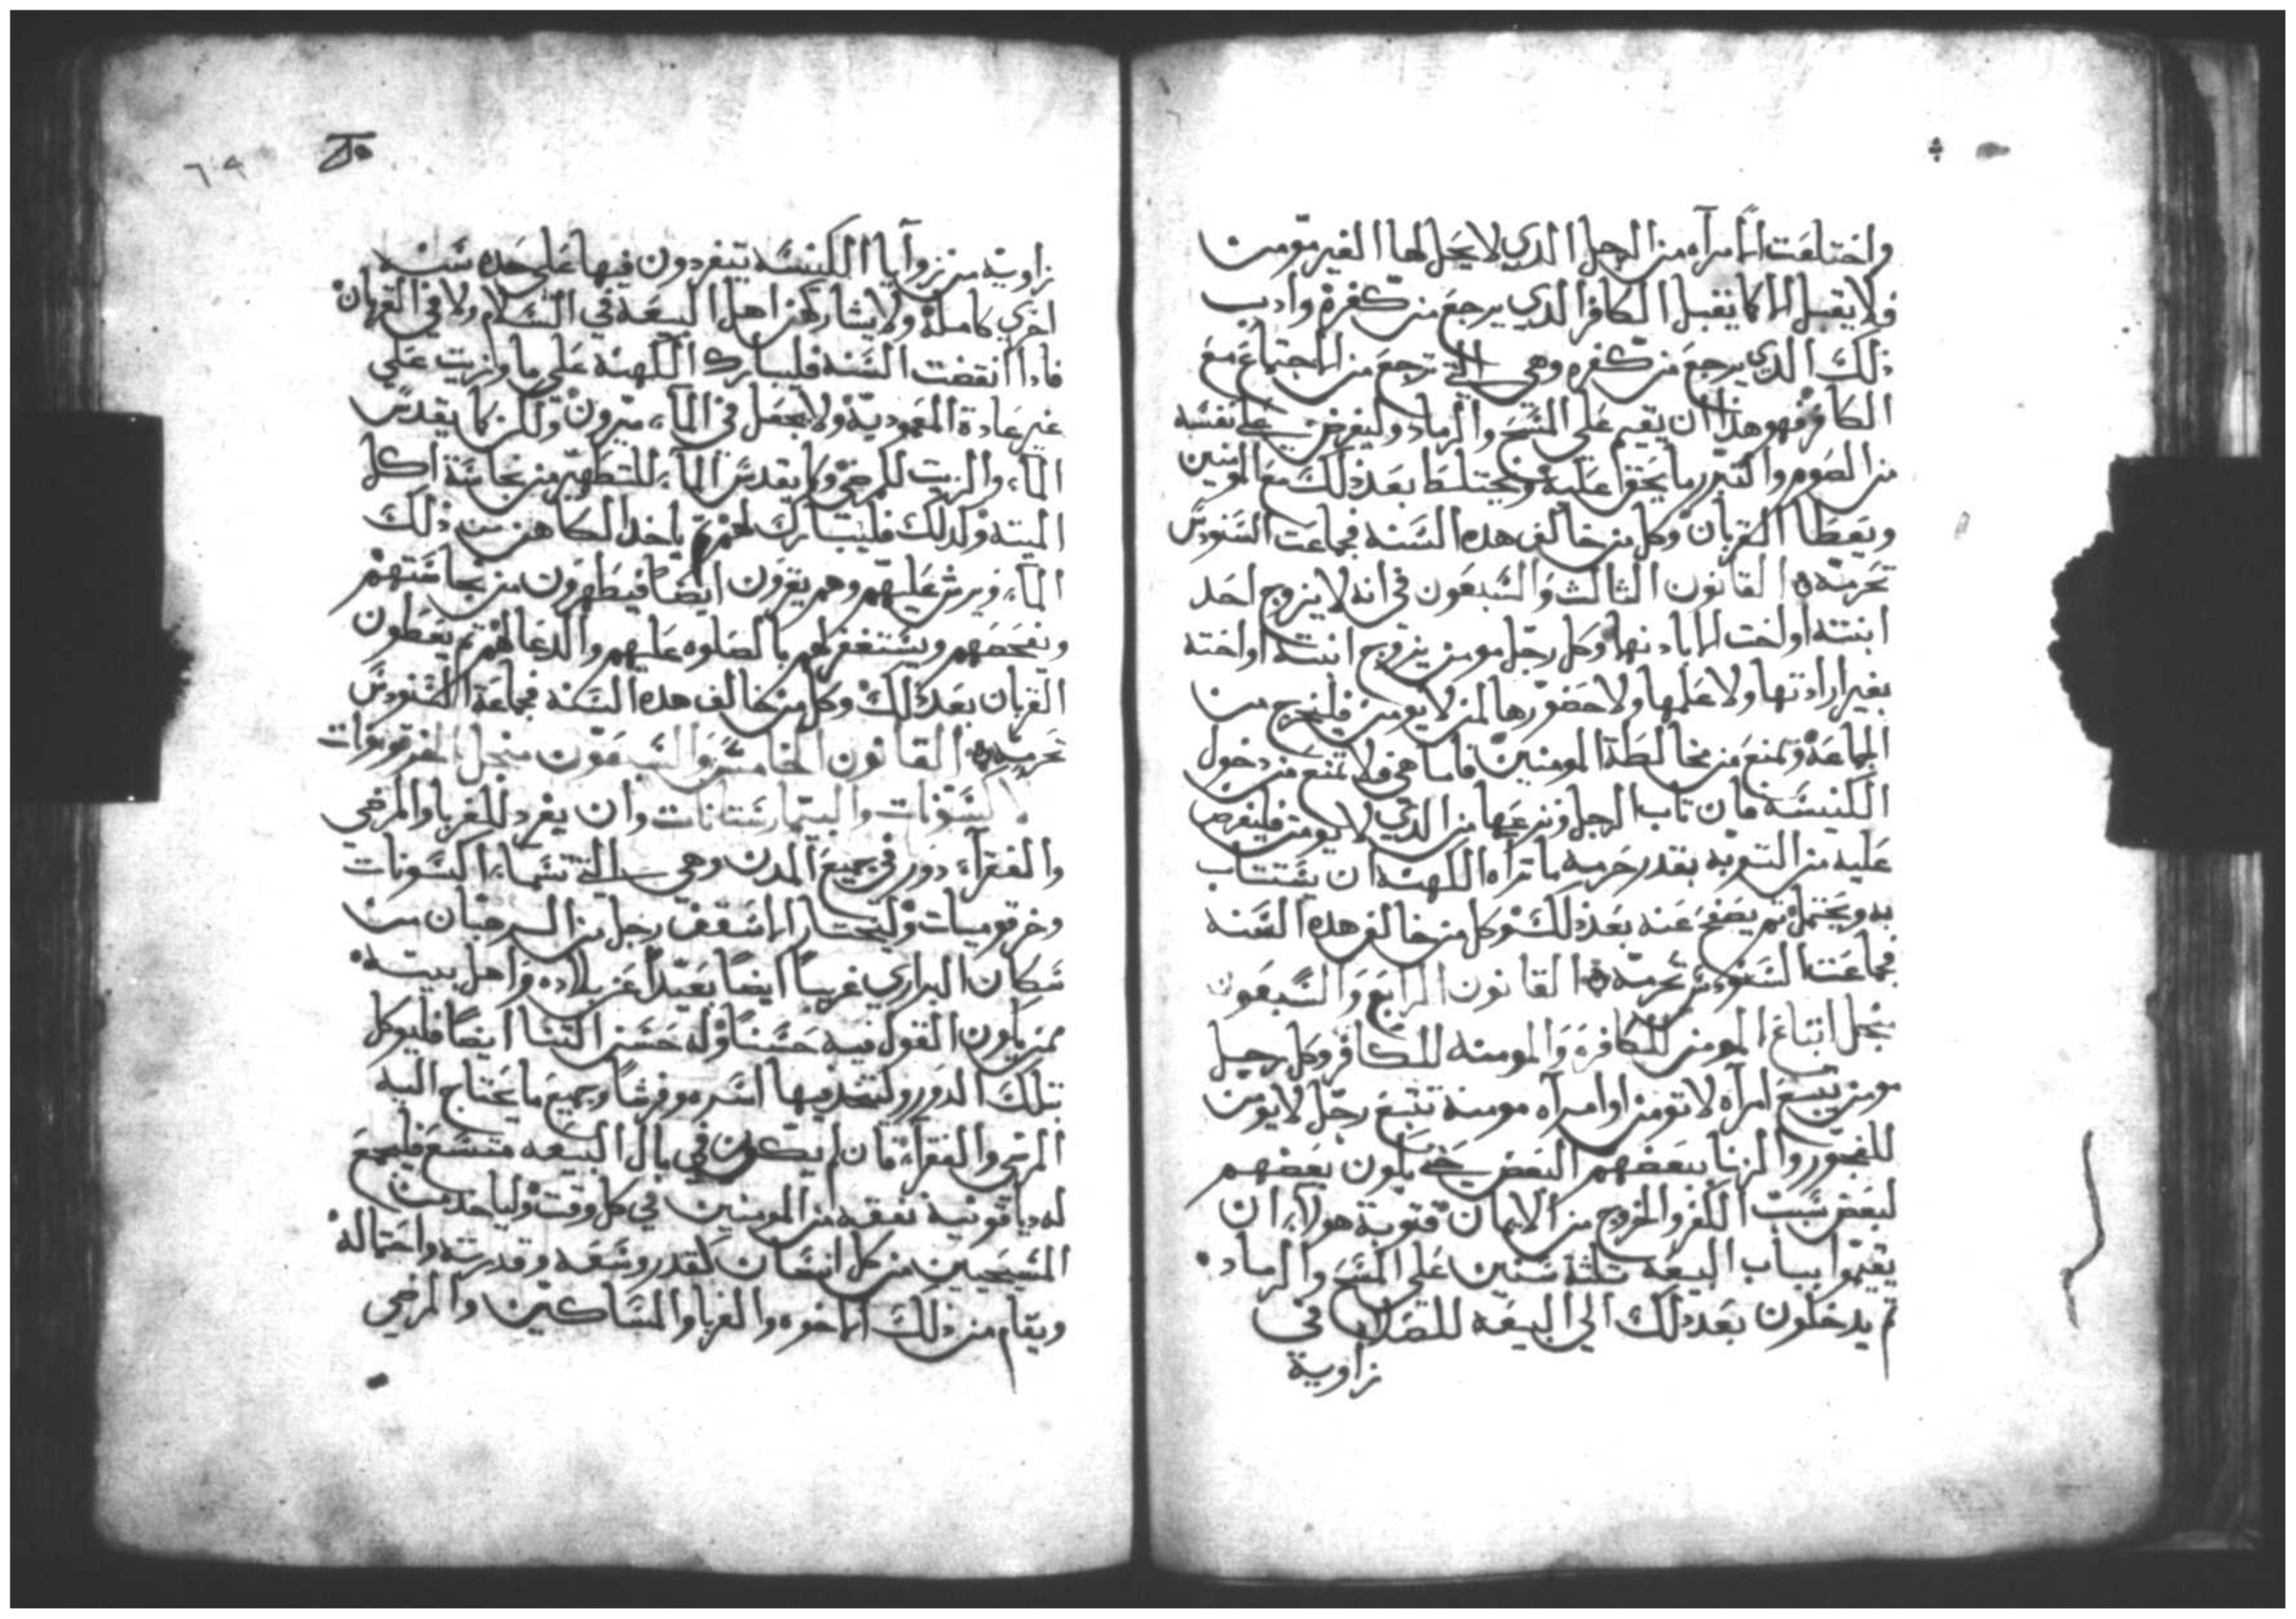 واختلعت المرآه من الرجل الدي لا يحل لها الغير مومن
فلا يقبل الا كما يقبل الكافر الدي يرجع من كفره وادب
ذلك الدي يرجع من كفره وهي التي ترجع من الاجتماع مع
الكافر فهو هذا ان يقيم علي المسح والرماد وليفرض علي نفسه
من الصوم والتبرر ما يحق عليه ويختلط بعد ذلك مع المومنين
ويعطا القربان وكل من خالف هده السنه فجماعت السنودس
تحرمه القانون الثالث والسبعون في انه لا يزوج احد
ابنته او اخت الا بادنها وكل رجل مومن يزوج ابنته او اخته
بغير ارادتها ولا علمها ولا حضورها لمن لا يومن فليخرج من
الجماعه ويمنع من مخالطة المومنين فاما هي فلا تمنع من دخول
الكنيسه فان تاب الرجل ونزعها من الدي لا يومن فليفرض
عليه من التوبه بقدر جرمه ما تراه الكهنه ان يستتاب
به ويحتمل ثم يصفح عنه بعد ذلك وكل من خالف هده السنه
فجماعت السنودس تحرمه القانون الرابع والسبعون
منجل اتباع المومن للكافره والمومنه للكافر وكل رجل
مومن يتبع امرآه لا تومن او امرآه مومنه تتبع رجل لا يومن
للفجور والزنا ببعضهم البعض حتي يكون بعضهم
لبعض سبب الكفر والخروج من الايمان فتوبة هولاء ان
يقيموا بباب البيعه تلثة سنين علي المسح والرماد
ثم يدخلون بعد دلك الي البيعه للصلاه في
زاوية
زاوية من زوآيا الكنيسه يتفردون فيها علي حده سنه
اخري كامله ولا يشاركهن اهل البيعه في السلام ولا في القربان
فادا انقضت السنه فليبارك الكهنه علي ما وزيت علي
غير عادة المعموديه ولا يجعل في الماء ميرون ولكن كما يقدس
الماء والزيت للمرضي وكما يقدس الماء للتطهير من نجاسة اكل
الميته وكدلك فليتبارك لهم ثم ياخد الكاهن من ذلك
الماء ويرش عليهم وهم يقرون ايضا فيطهرون من نجاستهم
ونفحصهم ويستغفر لهم بالصلوه عليهم والدعا لهم ثم يعطون
القربان بعد ذلك وكل من خالف هده السنه فجماعة السنودس
تحرمه القانون الخامس والسبعون منجل
البسونات والبيمارستانات وان يفرد للغربا والمرضي
والفقرآء دور في جميع المدن وهي التي تسماء البسونات
وخرقوميات وليختار الاسقف رجل من الرهبان من
سكان البراري غريبا ايضا بعيدا عن بلاده واهل بيته
ممن يكون القول فيه حسنا وله حسن الثنا ايضا فليوكل
بتلك الدور وليتخد فيها اسره وفرشا وجميع ما يحتاج اليه
المرضي والفقراء فان لم يكون في مال البيعه متسع فليجمع
له دياقونيه نفقه من المومنين في كل وقت ولياخد من
المسيحيين من كل انسان كقدر وسعه وقدرته واحتماله
ويقام من ذلك الاخوه والغربا والمساكين والمرضي